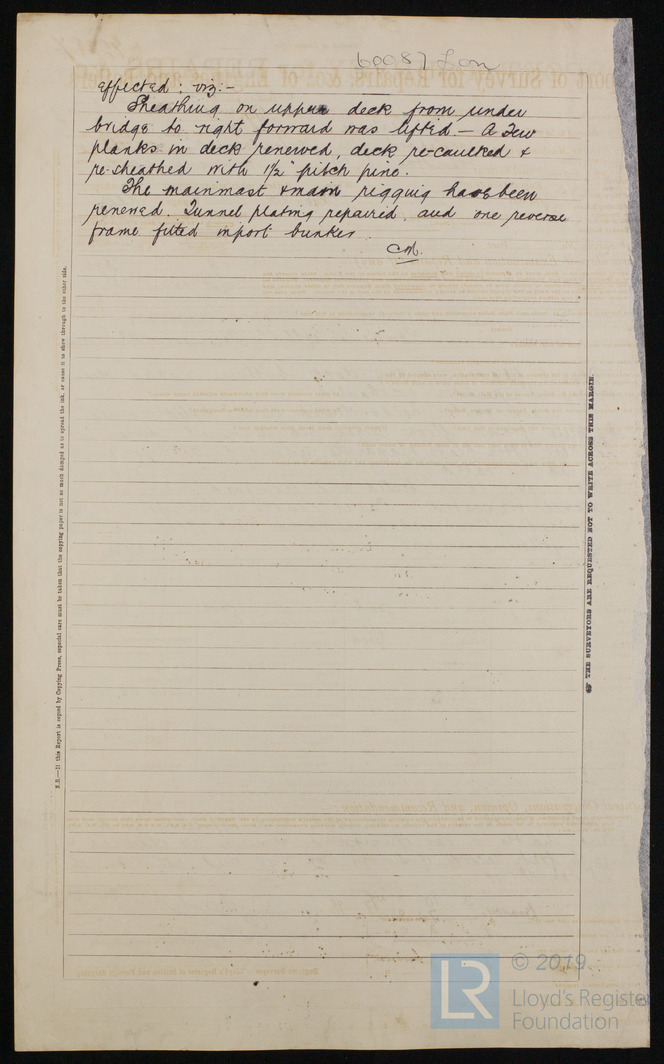 60087 Lon
effected; viz:-
Sheathing on upper deck from under
bridge to right forward was lifted - A few
planks in deck renewed, deck re-caulked &
re-sheathed with 1½" pitch pine.
The mainmast & main rigging has been
renewed. Tunnel plating repaired, and one reverse
frame fitted in port bunker.
N.B.—If this Report is copied by Copying Press, especial care must be taken that the copying paper is not so much damped as to spread the ink, or cause it to show through to the other side.
THE SURVEYORS ARE REQUESTED NOT TO WRITE ACROSS THIS MARGIN.
LR
© 2019
Lloyd's Register
Foundation